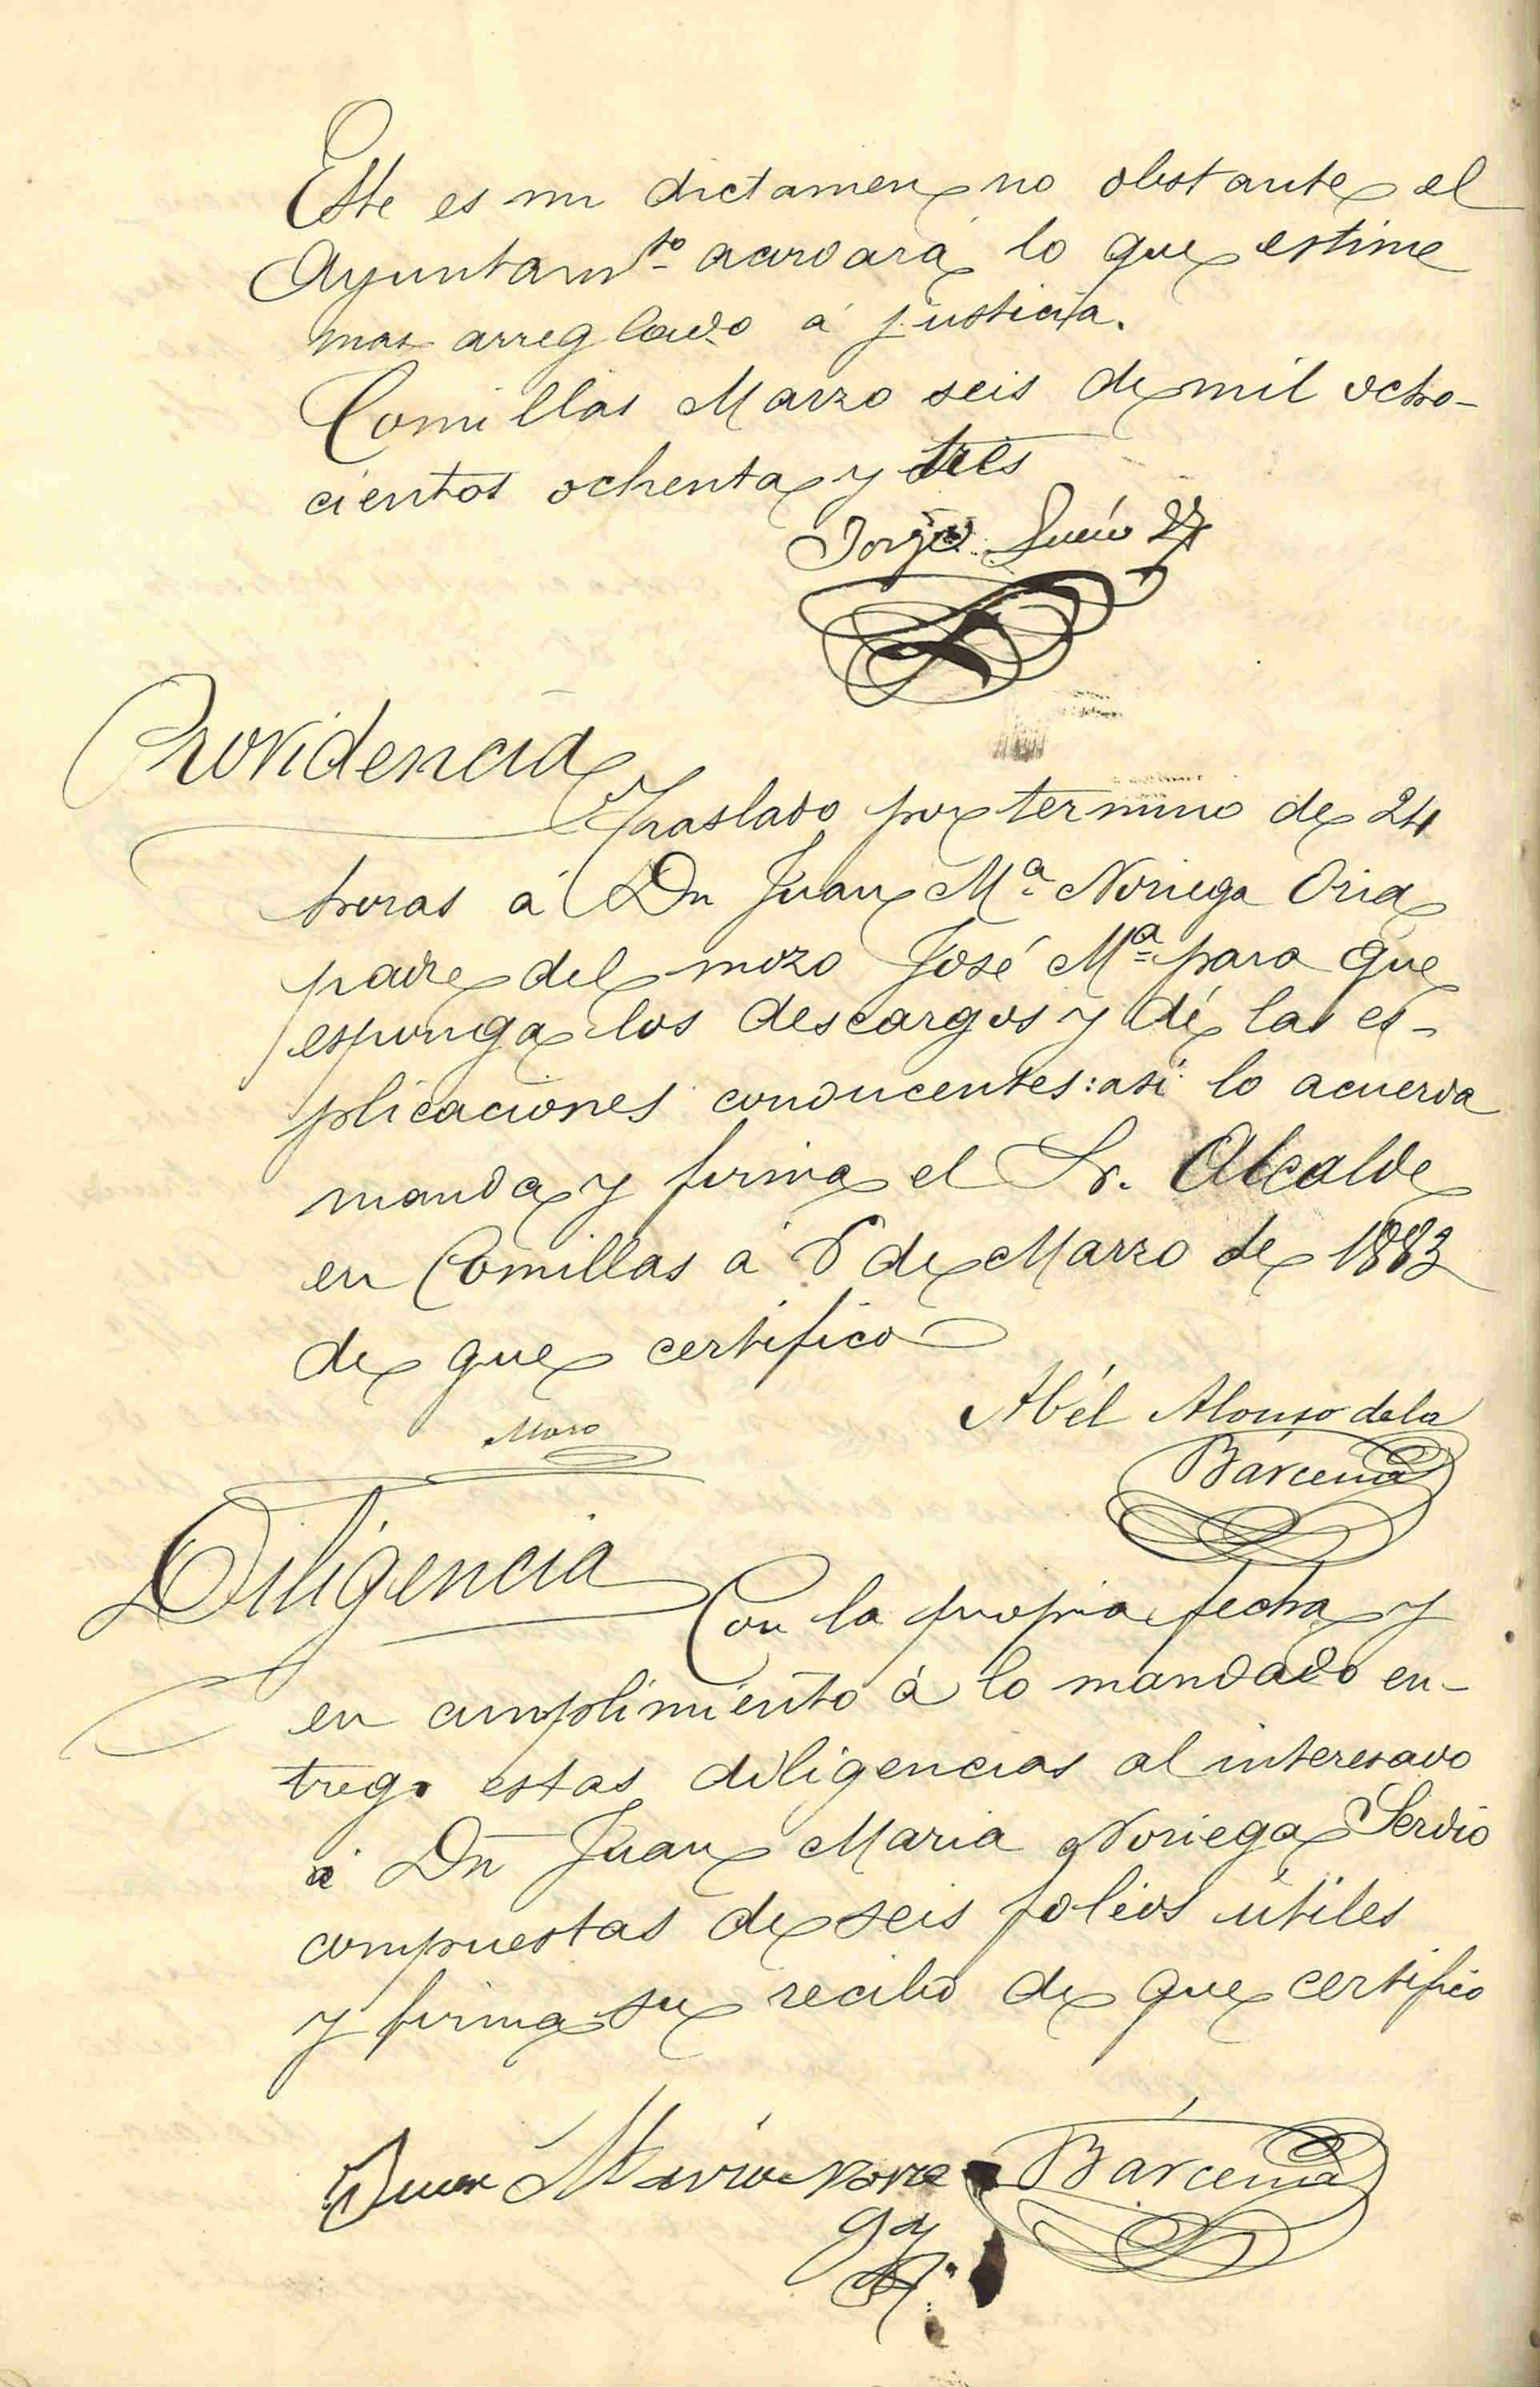 Este es mi dictamen, no obstante el
Ayuntamto acordará lo que estime
mas arreglado á justicia.
Comillas Marzo seis de mil ocho-
cientos ochenta y tres
Jorge
Providencia
Traslado por termino de 24
horas á Dn Juan Ma Noriega Oria
padre del mozo José Ma para que
esponga los descargos y dé las es-
plicaciones conducentes: asi lo acuerda
manda y firma el Sr. Alcalde
en Comillas á 6 de Marzo de 1883
de que certifico
Abél Alonso de la
Moro
Bárcena
Diligencia
Con la propia fecha y
en cumplimiento á lo mandado en-
trego estas diligencias al interesado
á Dn Juan Maria Noriega
compuestas de seis folios útiles
y firma su recibo de que certifico
Juan Maria norie
Bárcena
ga